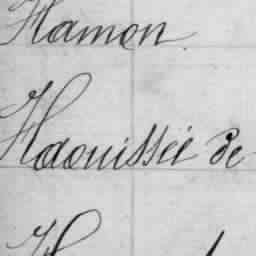 Hamon
Haouissée de